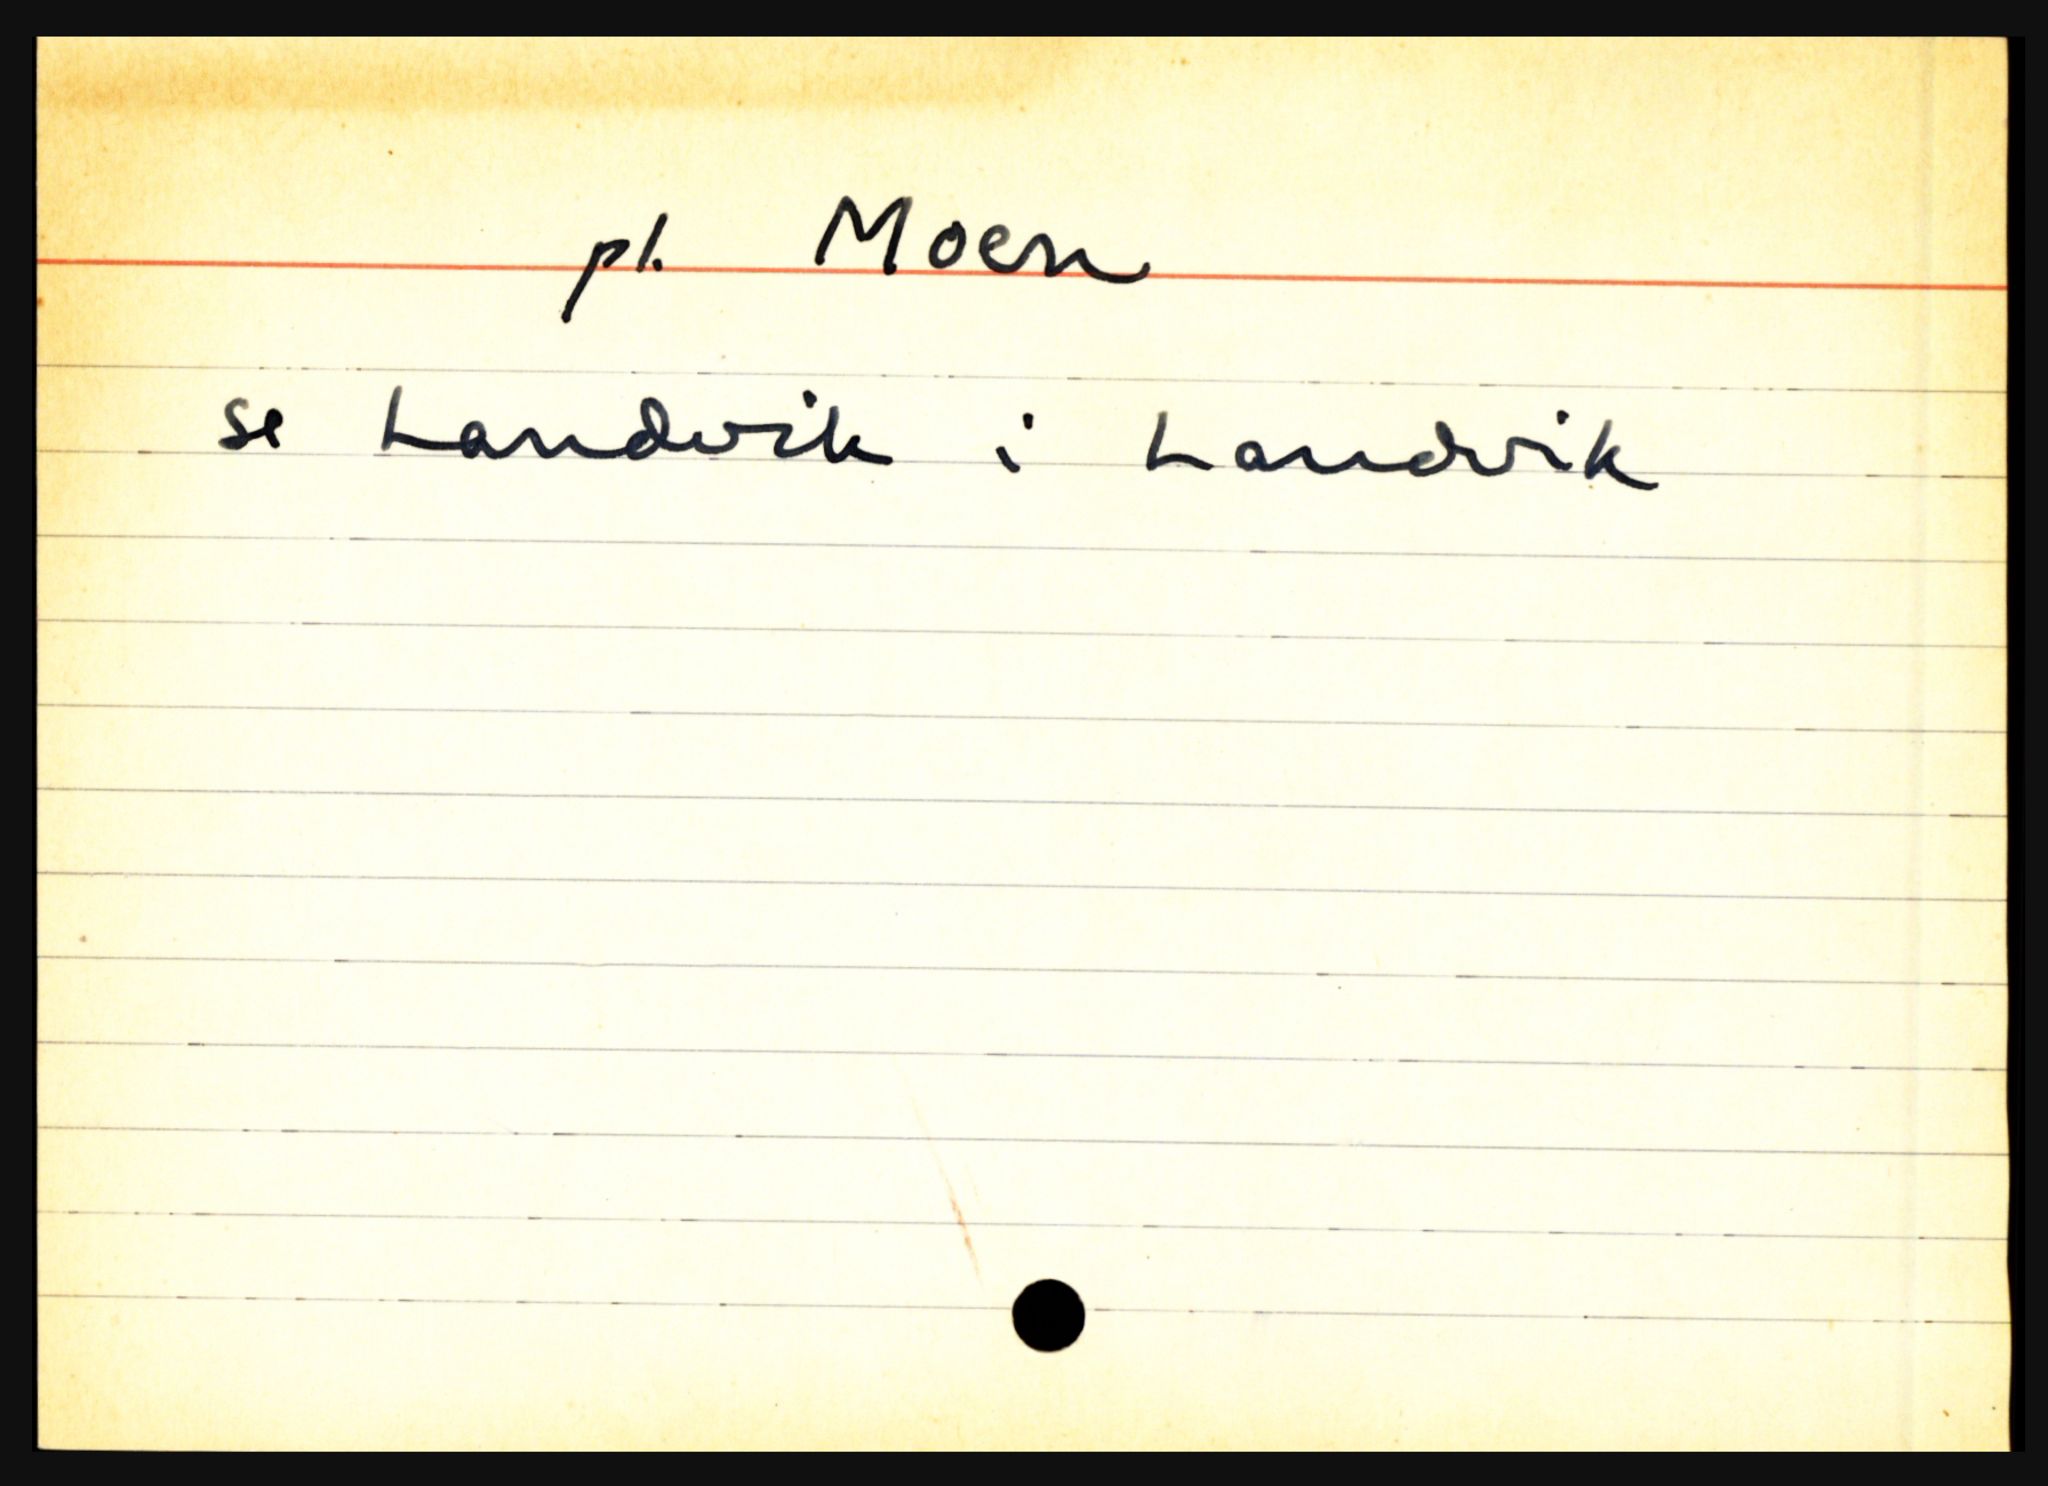 pl. Moen
se Landvik i Landvik